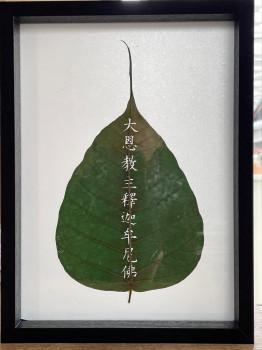 大恩教主釋迦牟尼佛